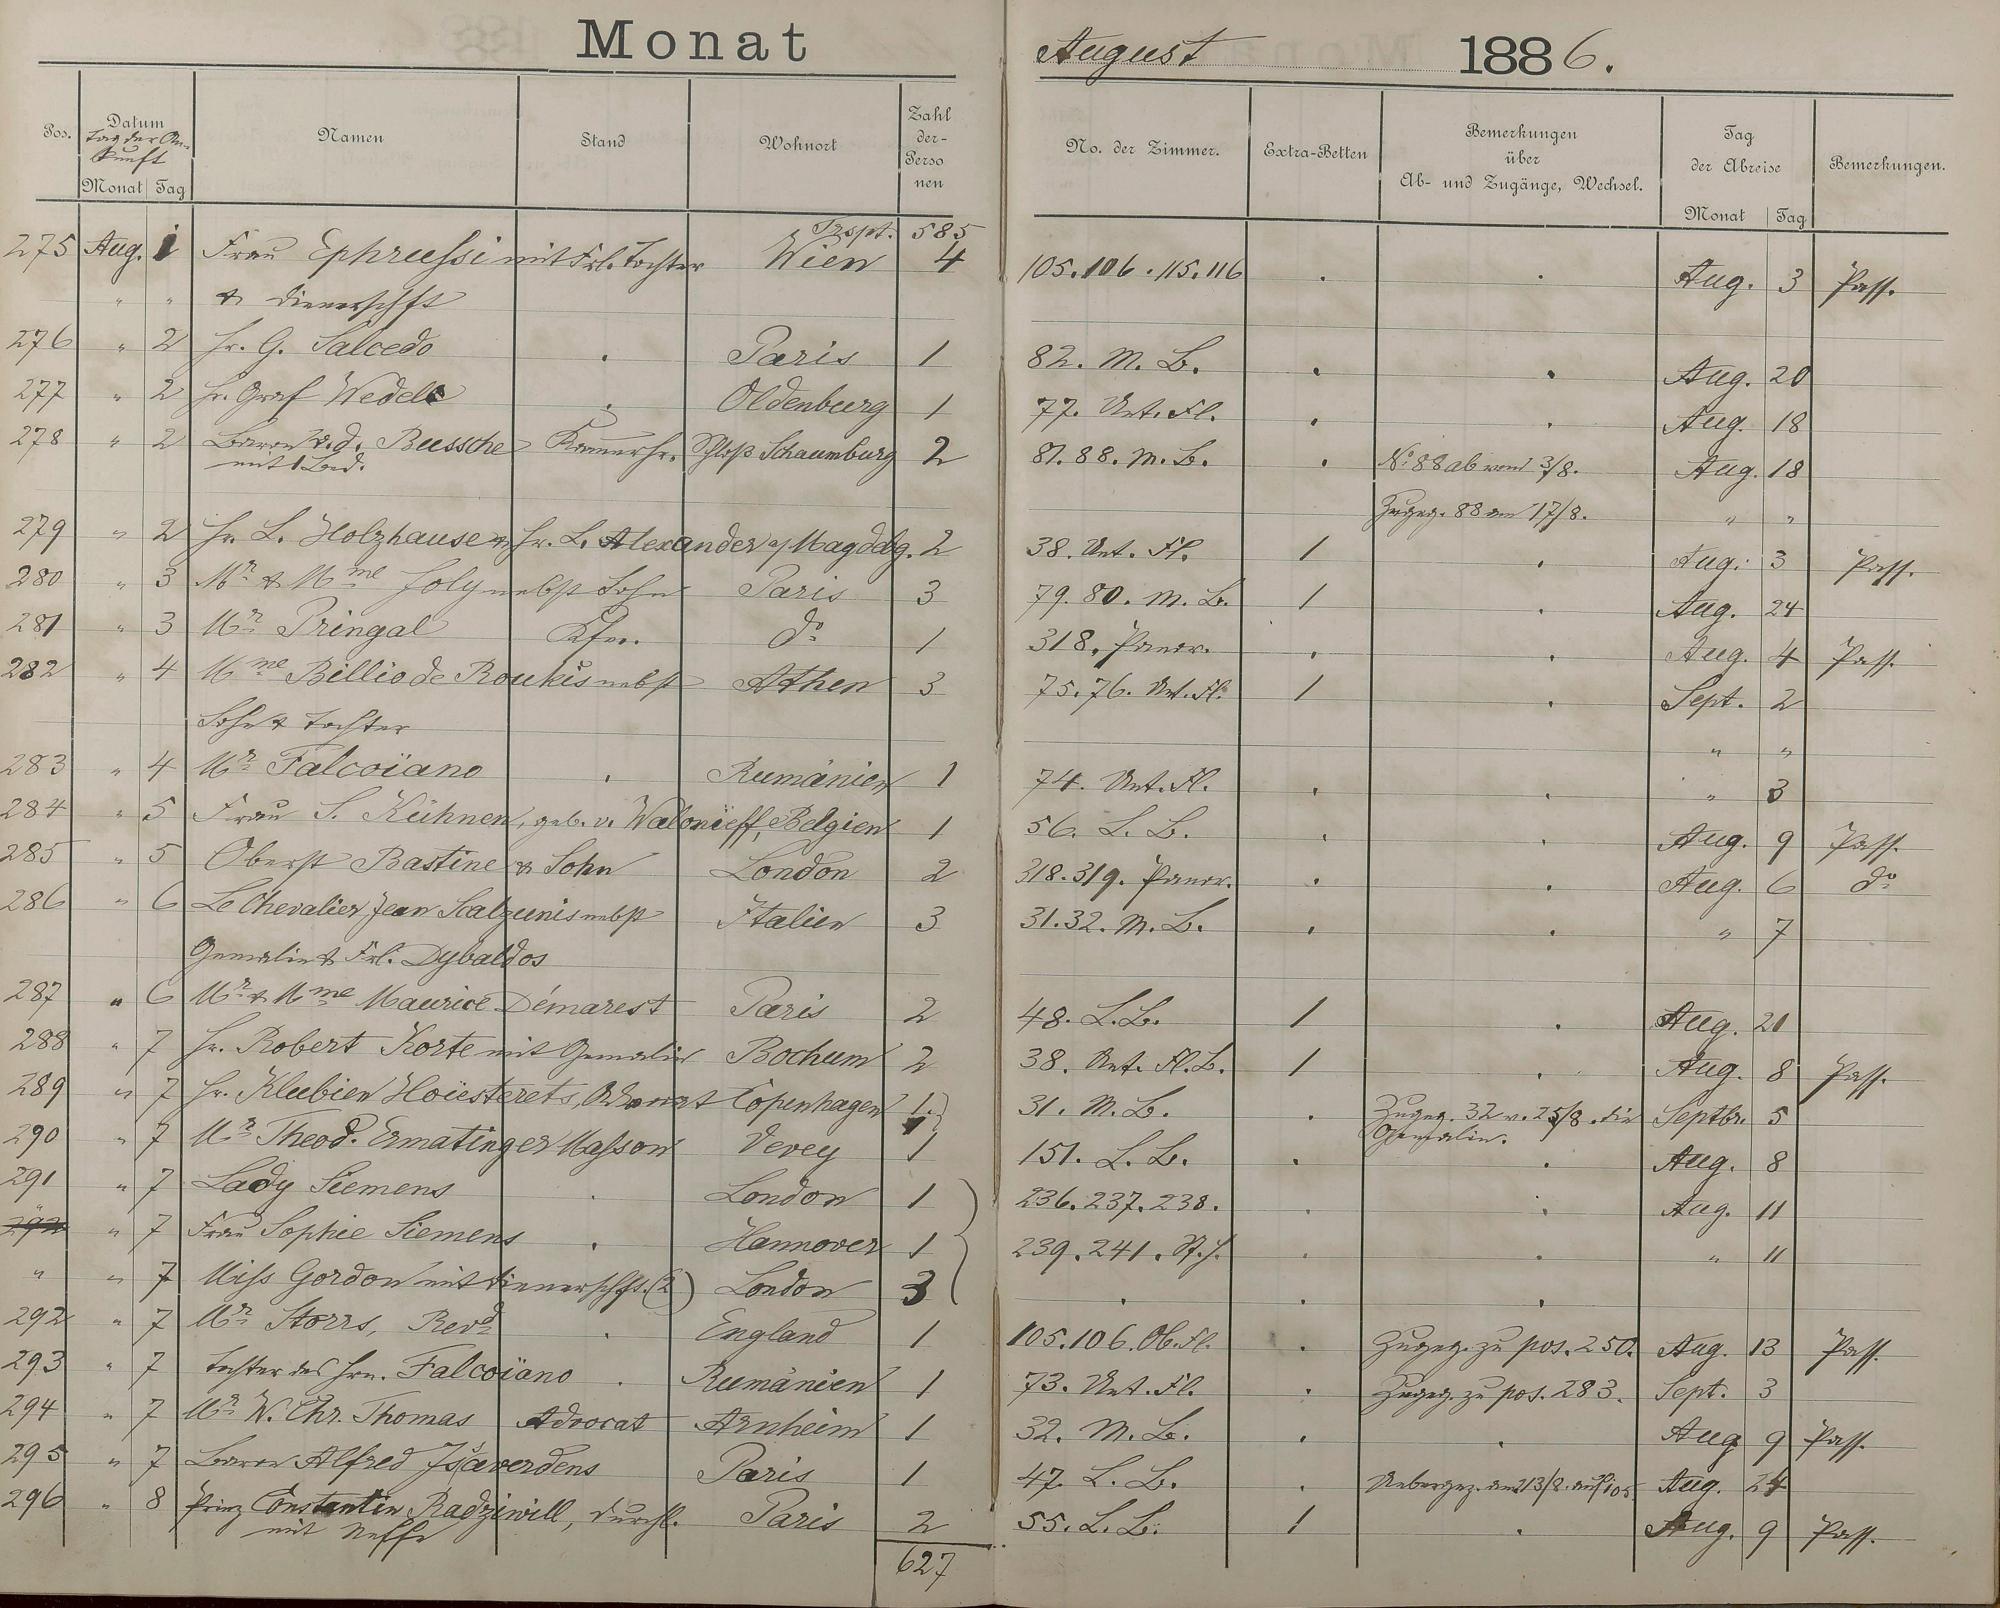 Monat August 1886.
Pos. Datum Namen Stand Wohnort Zahl der Personen No. der Zimmer. Extra-Betten Bemerkungen über Ab- und Zugänge, Wechsel. Tag der Abreise Bemerkungen.
Tag der Ankunft
Monat Tag Monat Tag
Trspt. 585
275 Aug. 1 Frau Ephrussi mit Frl. Tochter Wien 4 105. 106. 115. 116 . . Aug. 3 Pass.
" " & Dienerschft
276 " 2 Hr. G. Salcedo . Paris 1 82. M. B. . . Aug. 20
277 " 2 Hr. Graf Wedel . Oldenburg 1 77. Unt. Fl. . . Aug. 18
278 " 2 Baron v. d. Bussche Kammerhr. Schloß Schaumburg 2 87. 88. M. B. . No. 88 ab vom 3/8. Aug. 18
mit 1 Bed. Zugeg. 88 am 17/8. " "
279 " 2 Hr. L. Holzhause & Hr. L. Alexander a/ Magddbg. 2 38. Unt. Fl. 1 . Aug. 3 Pass.
280 " 3 Mr. & Mme Joly nebst Sohn Paris 3 79. 80. M. B. 1 . Aug. 24
281 " 3 Mr. Pringal Kfm. do 1 318. Panor. . . Aug. 4 Pass.
282 " 4 Mme Billio de Roukis nebst Athen 3 75. 76. Unt. Fl. 1 . Sept. 2
Sohn & Tochter " "
283 " 4 Mr. Falcoïano . Rumänien 1 74. Unt. Fl. . . " 3
284 " 5 Frau S. Kühnen, geb. v. Walonieff, Belgien 1 56. L. B. . . Aug. 9 Pass.
285 " 5 Oberst Bastine & Sohn London 2 318. 319. Panor. . . Aug. 6 do
286 " 6 Le Chevalier Jean Scalzunis nebst Italien 3 31. 32. M. B. . . " 7
Gemalin & Frl. Dybaldos
287 " 6 Mr. & Mme Maurice Démarest Paris 2 48. L. B. 1 . Aug. 21
288 " 7 Hr. Robert Korte mit Gemalin Bochum 2 38. Unt. Fl. B. 1 . Aug. 8 Pass.
289 " 7 Hr. Klubien Hoiesterets, Advocat Copenhagen 1. 31. M. B. . Zugeg. 32 v. 25/8. die Septbr. 5
Gemalin.
290 " 7 Mr. Theod. Ermatinger Masson Vevey 1 151. L. B. . . Aug. 8
291 " 7 Lady Siemens . London 1 236. 237. 238. . . Aug. 11
" " 7 Frau Sophie Siemens . Hannover 1 239. 241. . . " 11
" " 7 Miss Gordon mit Dienerschft. (2) London 3 . . .
292 " 7 Mr. Storrs, Revd . England 1 105. 106. Ob. Fl. . Zugeg. zu pos. 250. Aug. 13 Pass.
293 " 7 Tochter des Hrn. Falcoïano . Rumänien 1 73. Unt. Fl. . Zugeg. zu pos. 283. Sept. 3
294 " 7 Mr. W. Chr. Thomas Advocat Arnheim 1 32. M. B. . . Aug 9 Pass.
295 " 7 Baron Alfred Isaverdens Paris 1 47. L. B. . Uebergez. am 13/8. auf 105 Aug. 24
296 " 8 Prinz Constantin Radziwill, Durchl. Paris 2 55. L. B. 1 . Aug. 9 Pass.
mit Neffe
627